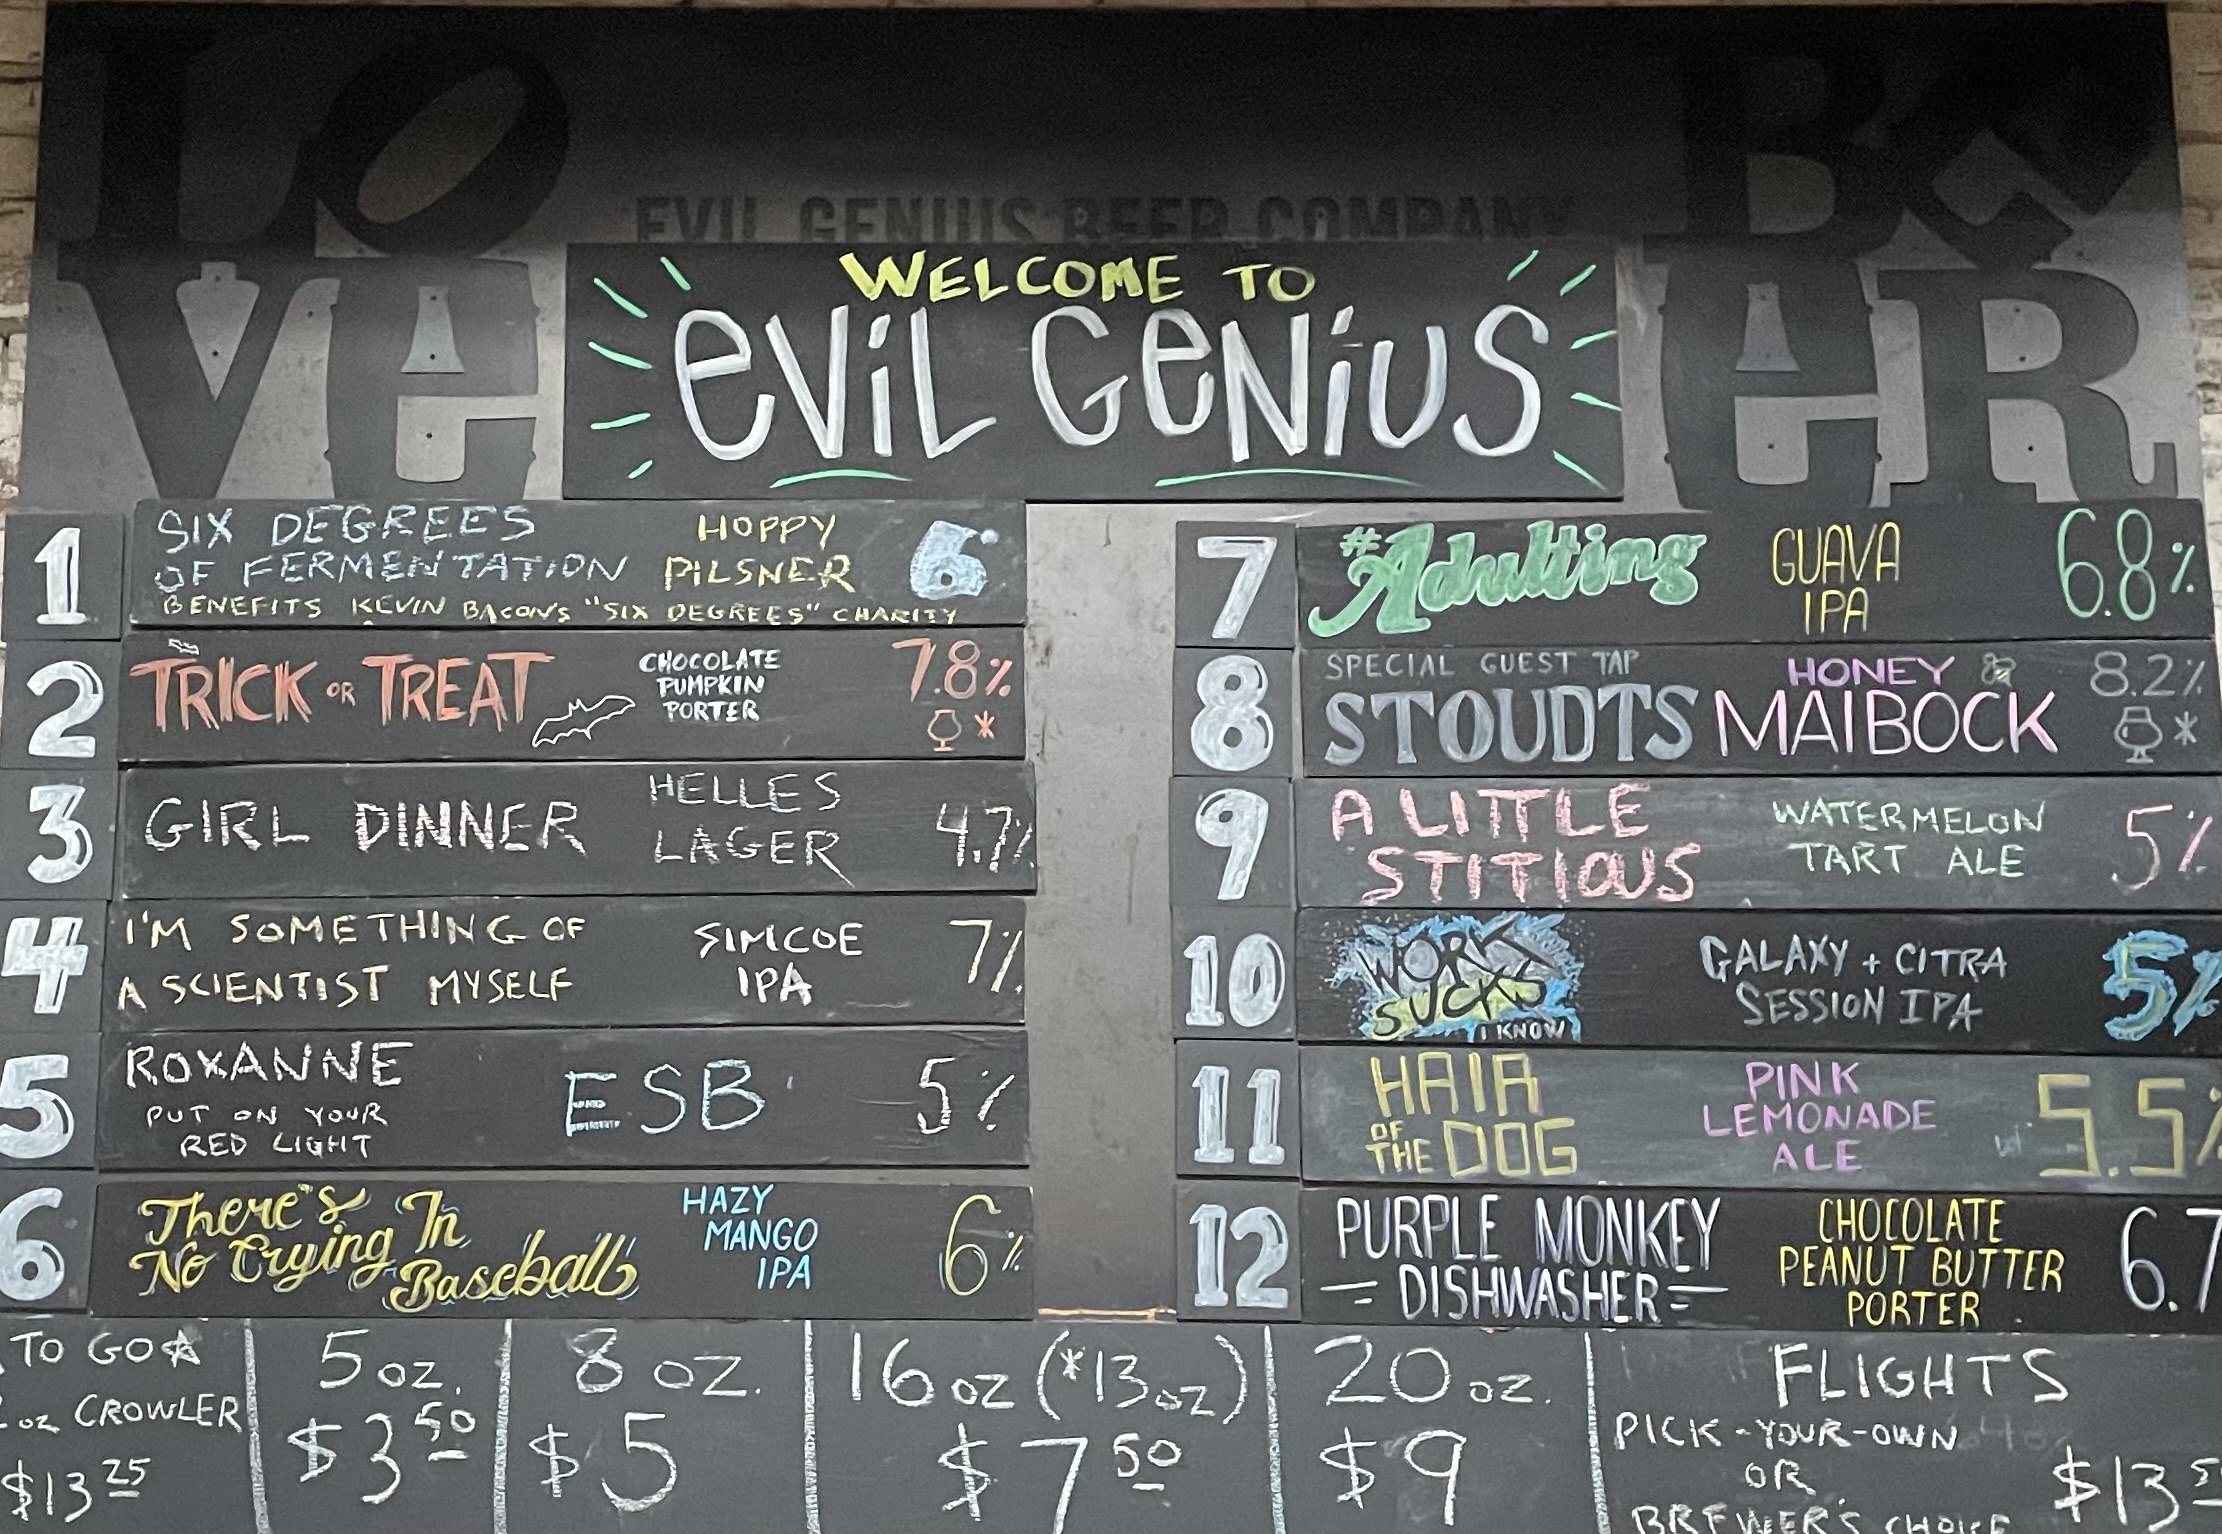 LOVE
BEER
EVIL GENIUS BEER COMPANY
WELCOME TO
EVIL GENIUS
1
SIX DEGREES
OF FERMENTATION
HOPPY
PILSNER
6
BENEFITS KEVIN BACON'S "SIX DEGREES" CHARITY
2
TRICK OR TREAT
CHOCOLATE
PUMPKIN
PORTER
7.8%
*
3
GIRL DINNER
HELLES
LAGER
4.7%
4
I'M SOMETHING OF
A SCIENTIST MYSELF
SIMCOE
IPA
7%
5
ROXANNE
PUT ON YOUR
RED LIGHT
ESB
5%
6
There's
No Crying In
Baseball
HAZY
MANGO
IPA
6%
7
#Adulting
GUAVA
IPA
6.8%
8
SPECIAL GUEST TAP
STOUDTS
HONEY
MAIBOCK
8.2%
*
9
A LITTLE
STITIOUS
WATERMELON
TART ALE
5%
10
WORK
SUCKS
I KNOW
GALAXY + CITRA
SESSION IPA
5%
11
HAIR
OF
THE DOG
PINK
LEMONADE
ALE
5.5%
12
PURPLE MONKEY
DISHWASHER
CHOCOLATE
PEANUT BUTTER
PORTER
6.7
TO GO
oz CROWLER
$13 25
5 oz.
$3 50
8 oz.
$5
16 oz (*13 oz)
$7 50
20 oz.
$9
FLIGHTS
PICK-YOUR-OWN
OR
BREWER'S CHOICE
$13